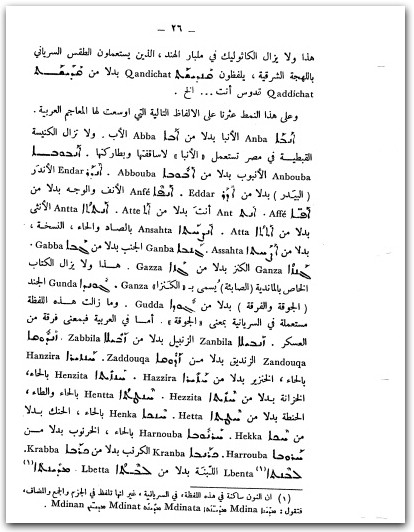 — ٢٦ —
هذا ولا يزال الكاثوليك في ملبار الهند، الذين يستعملون الطقس السرياني
باللهجة الشرقية، يلفظون ܩܢܕܝܫܬ Qandíchat بدلا من ܩܕܝܫܬ
Qaddíchat قدوس أنت ... الخ .
وعلى هذا النمط عثرنا على الالفاظ التالية التي اوسعت لها المعاجم العربية .
ܐܢܒܐ Anba الأنبا بدلا من ܐܒܐ Abba الأب . ولا تزال الكنيسة
القبطية في مصر تستعمل «الأنبا» لاساقفتها وبطاركتها . ܐܢܒܘܒܐ
Anbouba الأنبوب بدلا من ܐܒܘܒܐ Abbouba . ܐܢܕܪ Endar الأندَر
(البيدَر) بدلا من ܐܕܪ Eddar . ܐܢܦܐ Anfé الأنف والوجه بدلا من
ܐܦܐ Affé . ܐܢܬ Ant أنتَ بدلا من ܐܬ Atte . ܐܢܬܬܐ Antta الأنثى
بدلا من ܐܬܬܐ Atta . ܐܢܨܚܬܐ Ansahta بالصاد والحاء، النسخة ،
بدلا من Assahta . ܓܢܒܐ Ganba الجنب بدلا من ܓܒܐ Gabba .
ܓܢܙܐ Ganza الكنز بدلا من ܓܙܐ Gazza . هـذا ولا يزال الكتاب
الخاص بالماندية (الصابئة) يُسمى بـ «الكَنـْزا» Ganza . ܓܘܢܕܐ Gunda الجند
(الجوقة والفرقة) بدلا من ܓܘܕܐ Gudda . وما زالت هـذه اللفظة
مستعملة في السريانية بمعنى «الجوقة» . أمـا في العربية فبمعنى فرقة من
العسكر . ܙܢܒܝܠܐ Zanbila الزنبيل بدلا من ܙܒܝܠܐ Zabbila .
Zandouqa الزنديق بدلا من ܙܕܘܩܐ Zaddouqa . ܚܢܙܝܪܐ Hanzira
بالحاء، الخنزير بدلا من ܚܙܝܪܐ Hazzira . Henzita بالحاء،
الخزانة بدلا من Hezzita . ܚܢܛܬܐ Hentta بالحاء والطاء،
الحنطة بدلا من ܚܛܬܐ Hetta . ܚܢܟܐ Henka بالحاء ، الحنك بدلا
من ܚܟܐ Hekka . ܚܪܢܘܒܐ Harnouba بالحاء ، الخرنوب بدلا مـن
ܚܪܘܒܐ Harrouba . ܟܪܢܒܐ Kranba الكرنب بدلا من ܟܪܒܐ Krabba .
ܠܒܢܬܐ (١) Lbenta اللَبِنَـة بدلا من ܠܒܬܐ Lbetta . ܡܕܝܢܬܐ (١)
(١) ان النون ساكنة في هذه اللفظة، في السريانية، غير انها تلفظ في الجزم والجمع والمضاف،
فنقول: ܡܕܝܢܐ Mdina ܡܕܝܢܬܐ Mdinata ܡܕܝܢܬ Mdinat ܡܕܝܢܢ Mdinan .